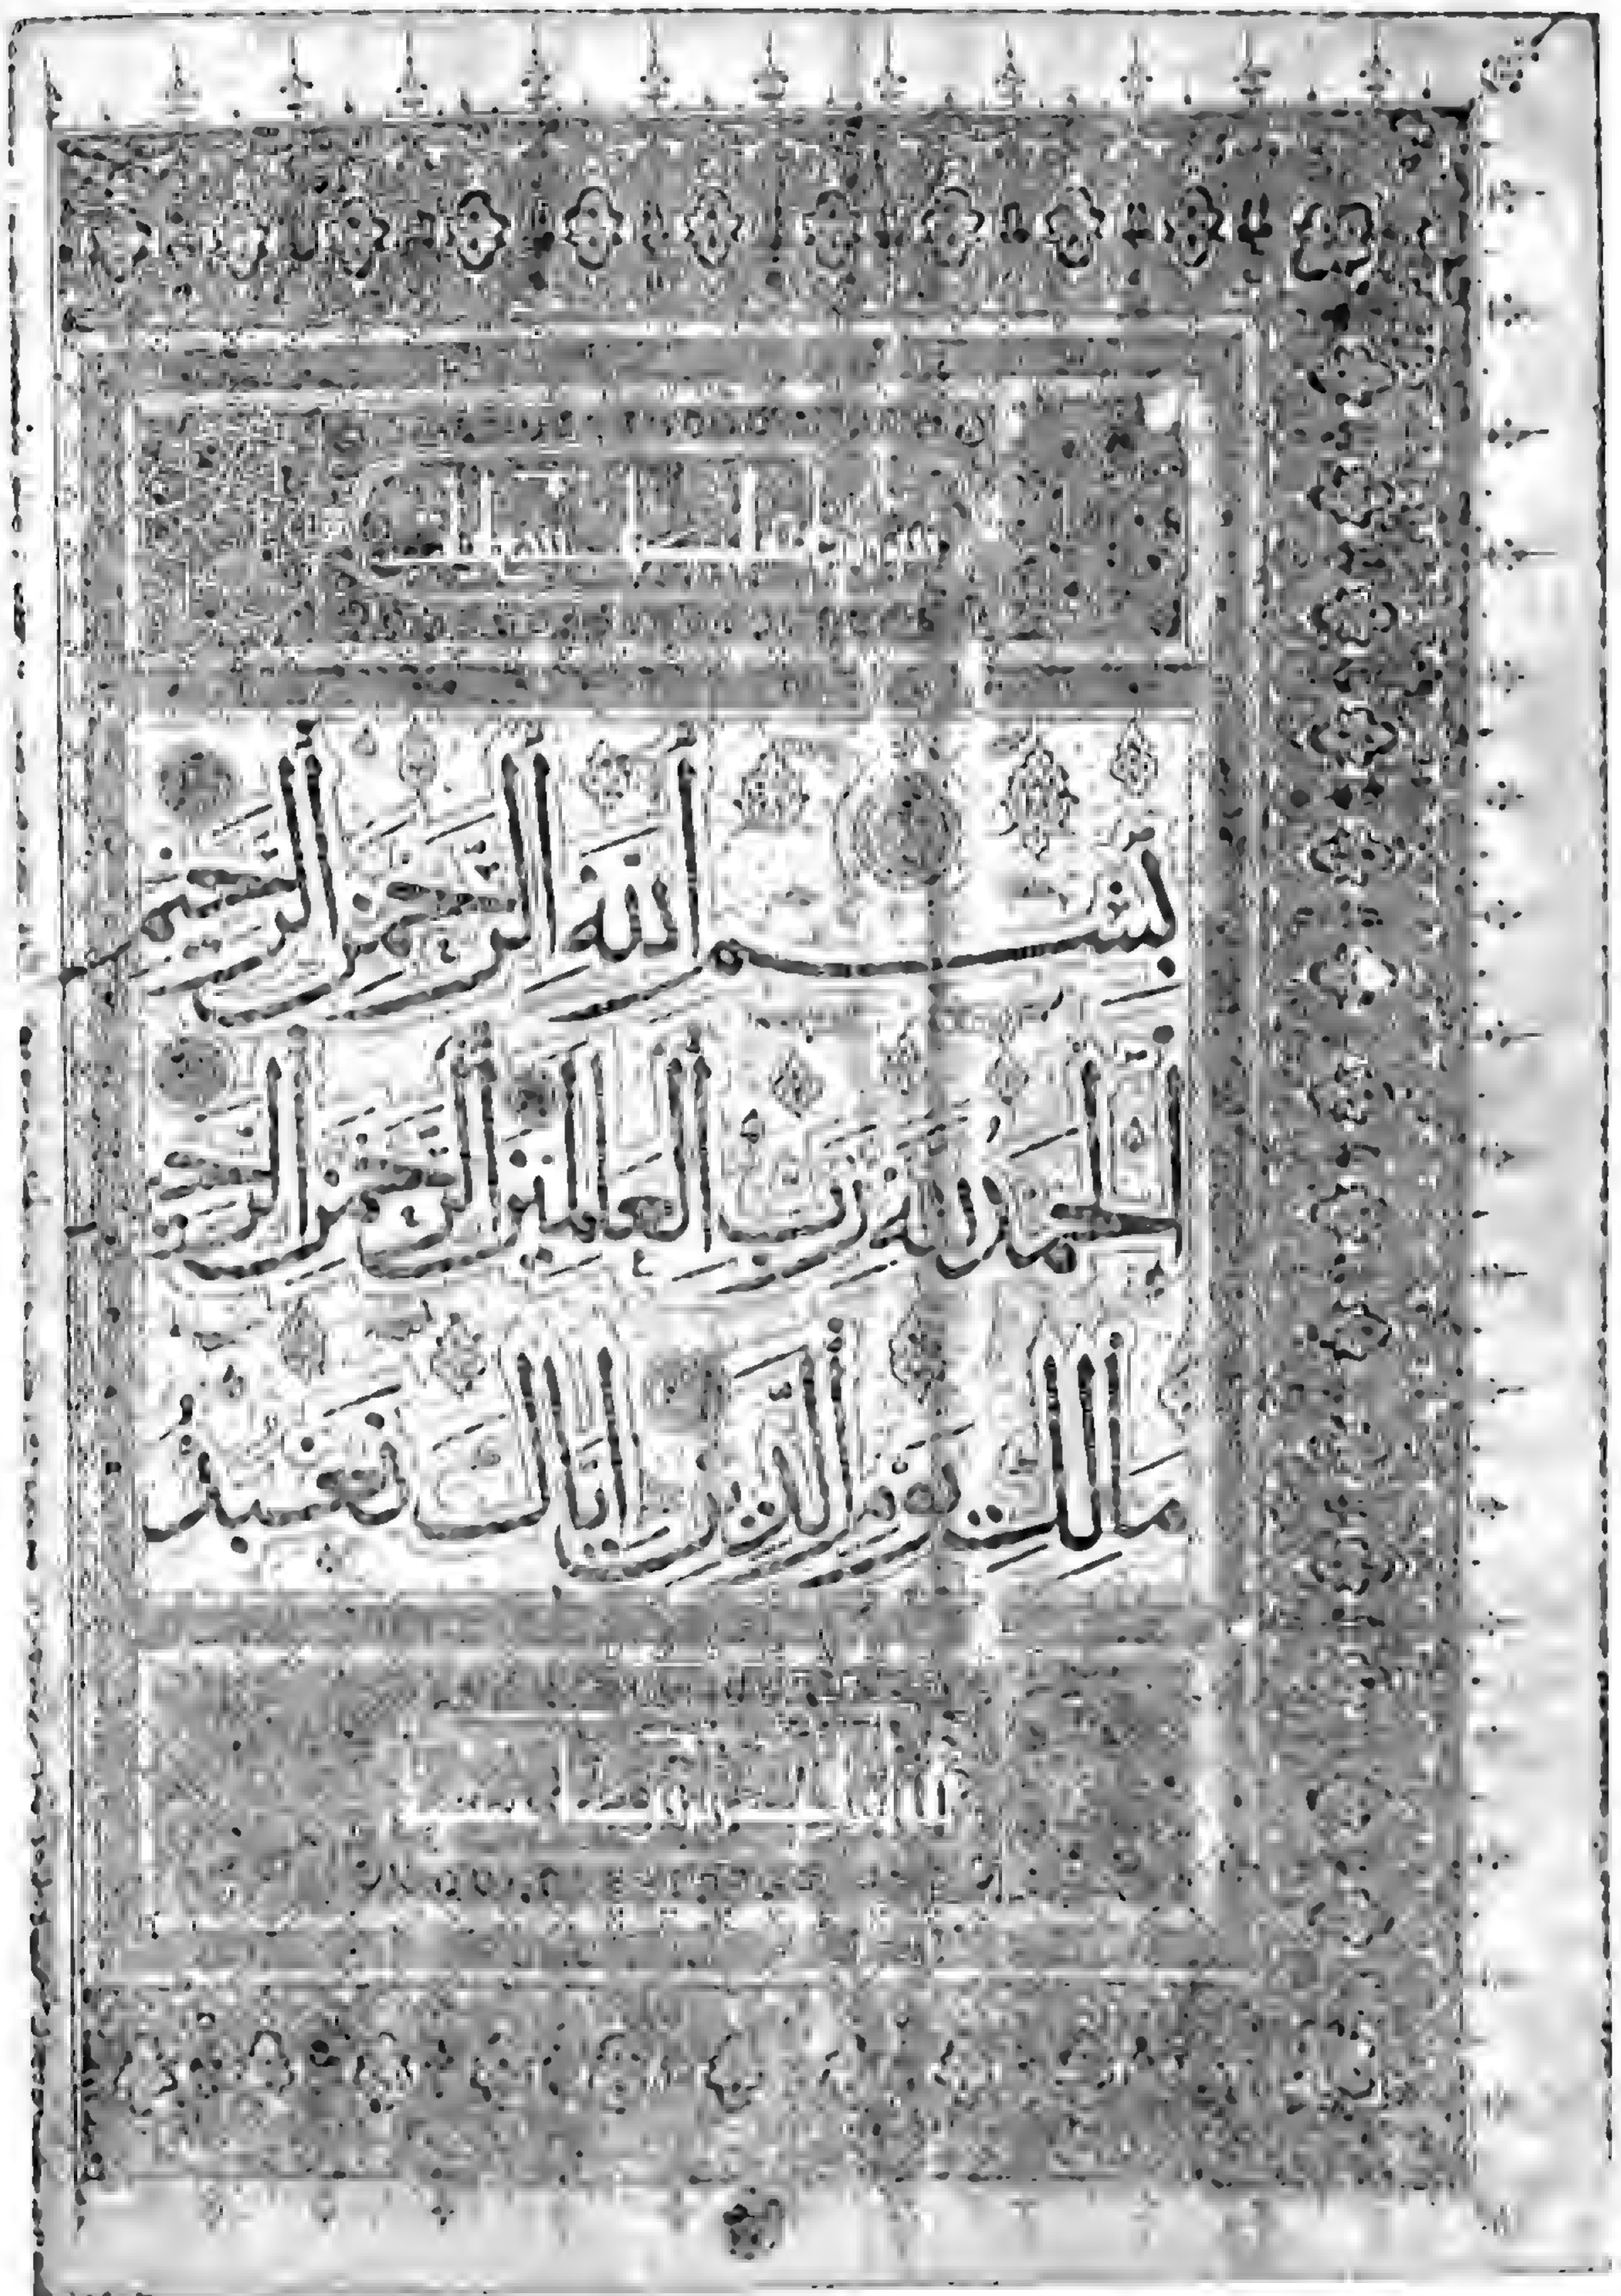 بِسْمِ اللَّهِ الرَّحْمَٰنِ الرَّحِيمِ
الْحَمْدُ لِلَّهِ رَبِّ الْعَالَمِينَ الرَّحْمَٰنِ الرَّحِيمِ
مَالِكِ يَوْمِ الدِّينِ إِيَّاكَ نَعْبُدُ